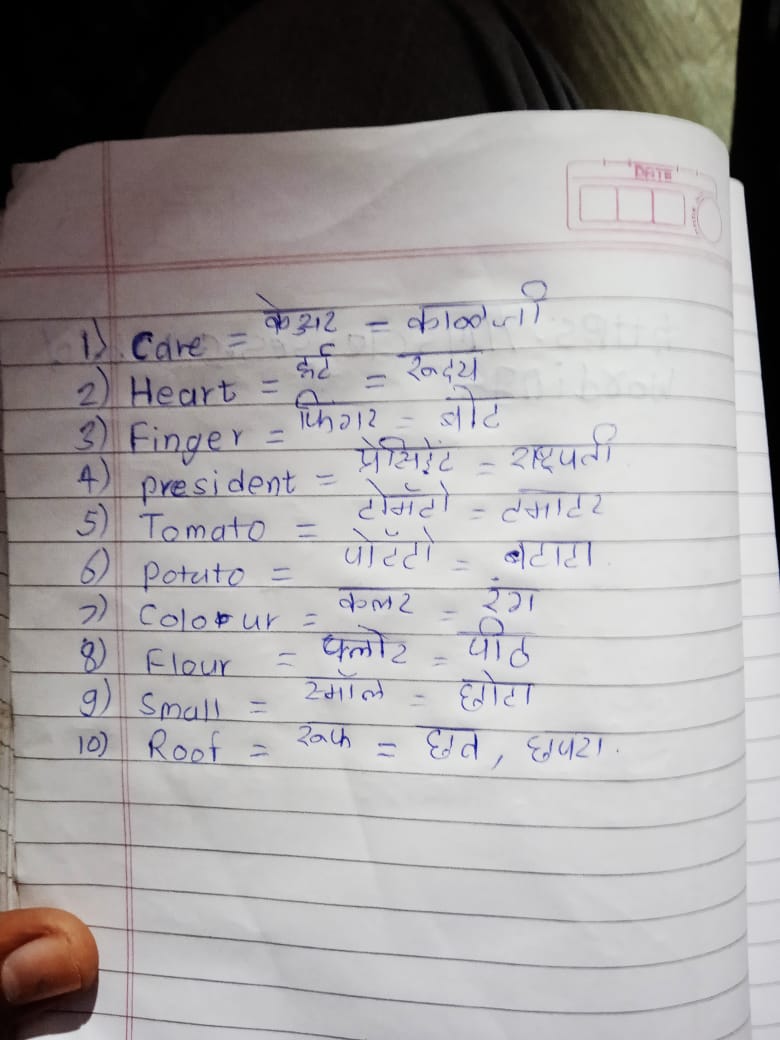 DATE
1) Care = केअर = काळजी
2) Heart = हर्ट = रूदय
3) Finger = फिंगर = बोट
4) president = प्रेसिडेंट = राष्ट्रपती
5) Tomato = टोमॅटो = टमाटर
6) potato = पोटॅटो = बटाटा
7) Colour = कलर = रंग
8) Flour = फ्लोर = पीठ
9) Small = स्मॉल = छोटा
10) Roof = रूफ = छत, छपरा.